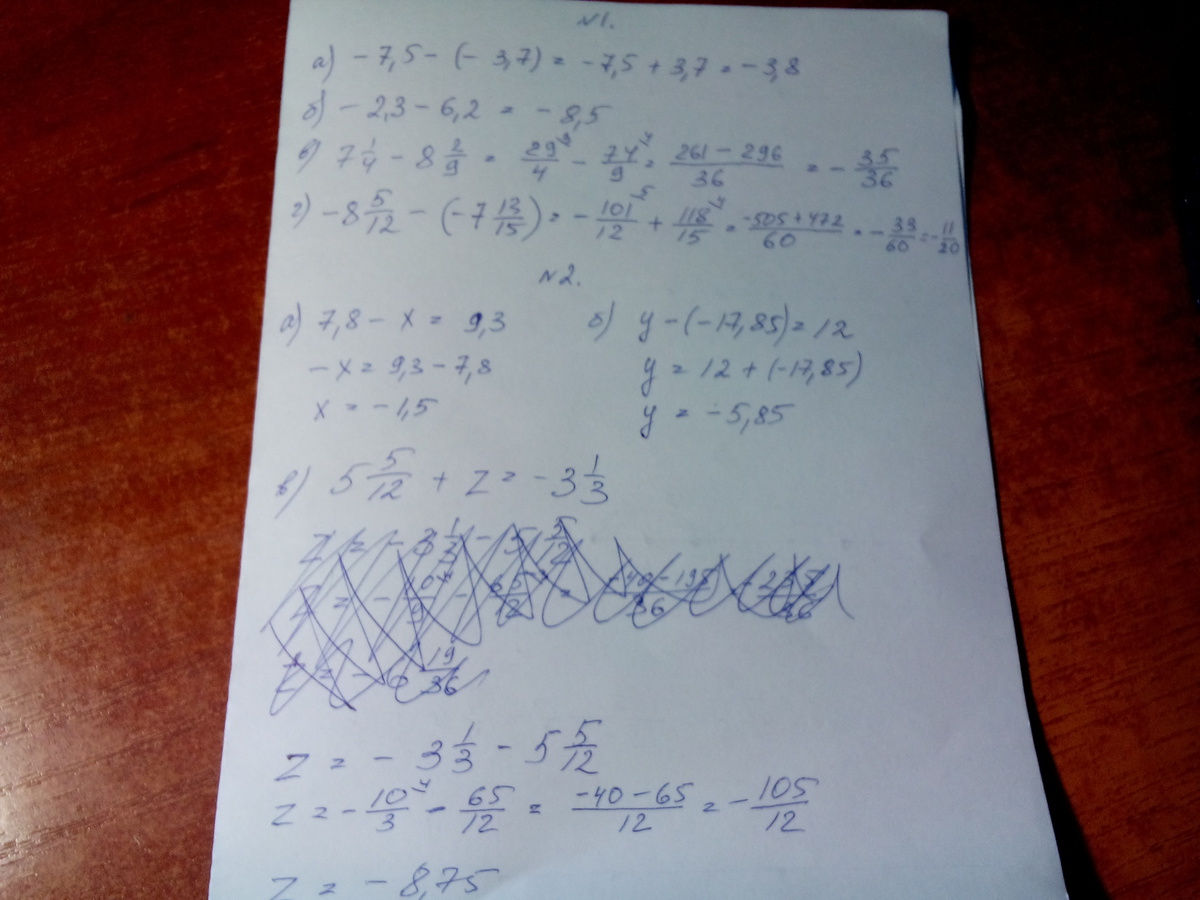 №1.
а) -7,5 - (-3,7) = -7,5 + 3,7 = -3,8
б) -2,3 - 6,2 = -8,5
в) 7 1/4 - 8 2/9 = 29/4 - 74/9 = (261 - 296)/36 = -35/36
г) -8 5/12 - (-7 13/15) = -101/12 + 118/15 = (-505 + 472)/60 = -33/60 = -11/20
№2.
а) 7,8 - x = 9,3
-x = 9,3 - 7,8
x = -1,5
б) y - (-17,85) = 12
y = 12 + (-17,85)
y = -5,85
в) 5 5/12 + z = -3 1/3
z = -3 1/3 - 5 5/12
z = -10/3 - 65/12 = (-40 - 65)/12 = -105/12
z = -8,75